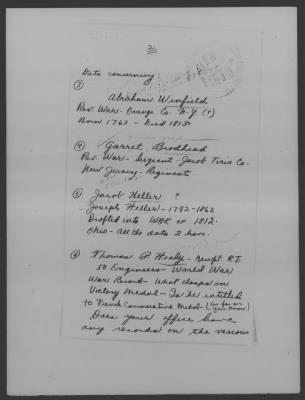 2
Data concerning
③
Abraham Winfield
Rev. War - Orange Co. N.Y. (?)
Born 1763 - Died 1813
④ Garret Brodhead
Rev. War - Sergeant - Jacob Co.
New Jersey - Regiment
⑤ Jacob Heller ?
Joseph Heller - 1792-1862
Drafted into War of 1812.
Ohio - all the data I have.
⑥ Thomas P Healy - Newpt. R.I.
50 Engineers - World War
War Record - What clasps on
Victory Medal - Is he intitled
to Commemorative Medal - (as far as
you know)
Does your office have
any records on the various